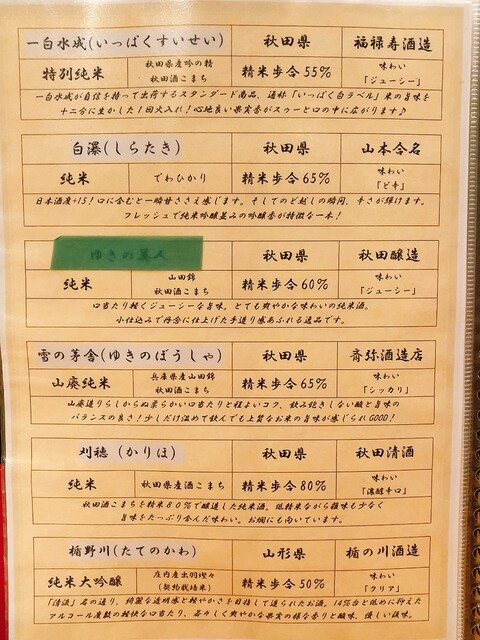 一白水成(いっぱくすいせい) 秋田県 福禄寿酒造
特別純米 秋田県産吟の精 秋田酒こまち 精米歩合55% 味わい「ジューシー」
一白水成が自信を持って出荷するスタンダード商品、通称「いっぱく白ラベル」米の旨味を
十二分に生かした1回火入れ!心地良い果実香がスゥーと口の中に広がります♪
白瀑(しらたき) 秋田県 山本合名
純米 でわひかり 精米歩合65% 味わい「ドキ」
日本酒度+15!口に含むと一瞬甘ささえ感じます。そしてのど越しの瞬間、辛さが弾けます。
フレッシュで純米吟醸並みの吟醸香が特徴な一本!
ゆきの美人 秋田県 秋田醸造
純米 山田錦 秋田酒こまち 精米歩合60% 味わい「ジューシー」
口当たり軽くジューシーな旨味。とても爽やかな味わいの純米酒。
小仕込みで丹念に仕上げた手造り感あふれる逸品です。
雪の茅舎(ゆきのぼうしゃ) 秋田県 齋弥酒造店
山廃純米 兵庫県産山田錦 秋田酒こまち 精米歩合65% 味わい「シッカリ」
山廃造りらしからぬ柔らかい口当たりと程よいコク、飲み飽きしない酸と旨味の
バランスの良さ!少しだけ温めて飲んでも上質なお米の旨味が感じられGOOD!
刈穂(かりほ) 秋田県 秋田清酒
純米 秋田県産酒こまち 精米歩合80% 味わい「濃醇辛口」
秋田酒こまちを精米80%で醸造した純米酒。低精米ながら雑味も少なく
旨味をたっぷり含んだ味わい。お燗にも向いています。
楯野川(たてのかわ) 山形県 楯の川酒造
純米大吟醸 庄内産出羽燦々(契約栽培米) 精米歩合50% 味わい「クリア」
「清流」名の通り、綺麗な透明感と軽やかさを目指して造られたお酒。14%台と低めに抑えた
アルコール度数の軽快な口当たり、若々しく爽やかな果実の様な香りと酸味、優しい後味。